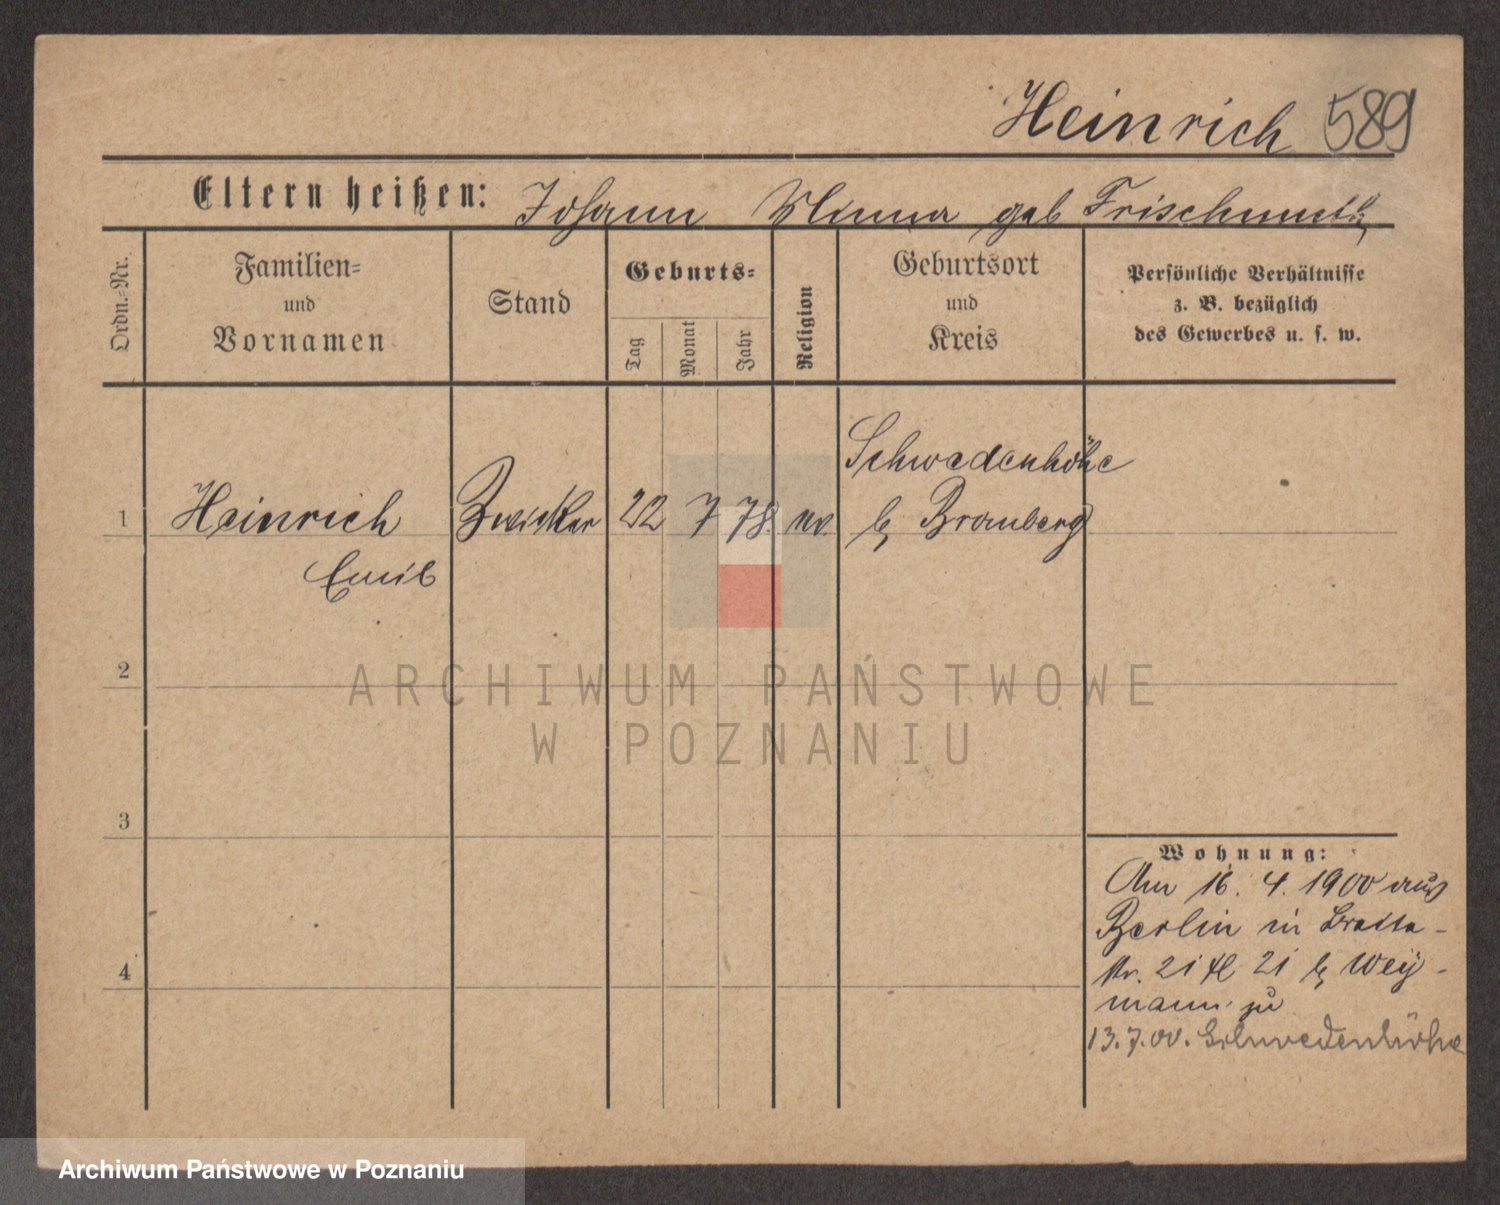 Heinrich 589
Eltern heißen: Johann Minna geb Frischmuth
Ordn.-Nr.
Familien-
und
Vornamen
Stand
Geburts-
Tag
Monat
Jahr
Religion
Geburtsort
und
Kreis
Persönliche Verhältnisse
z. B. bezüglich
des Gewerbes u. s. w.
1 Heinrich Zwicker 22 7 78. ev.
Emil
Schwedenhöhe
b. Bromberg
2
3
4
ARCHIWUM PAŃSTWOWE
W POZNANIU
Wohnung:
Am 16. 4. 1900 aus
Berlin in
str. 21 21 b. Wey-
mann zu
13.7.00. Schwedenhöhe
Archiwum Państwowe w Poznaniu